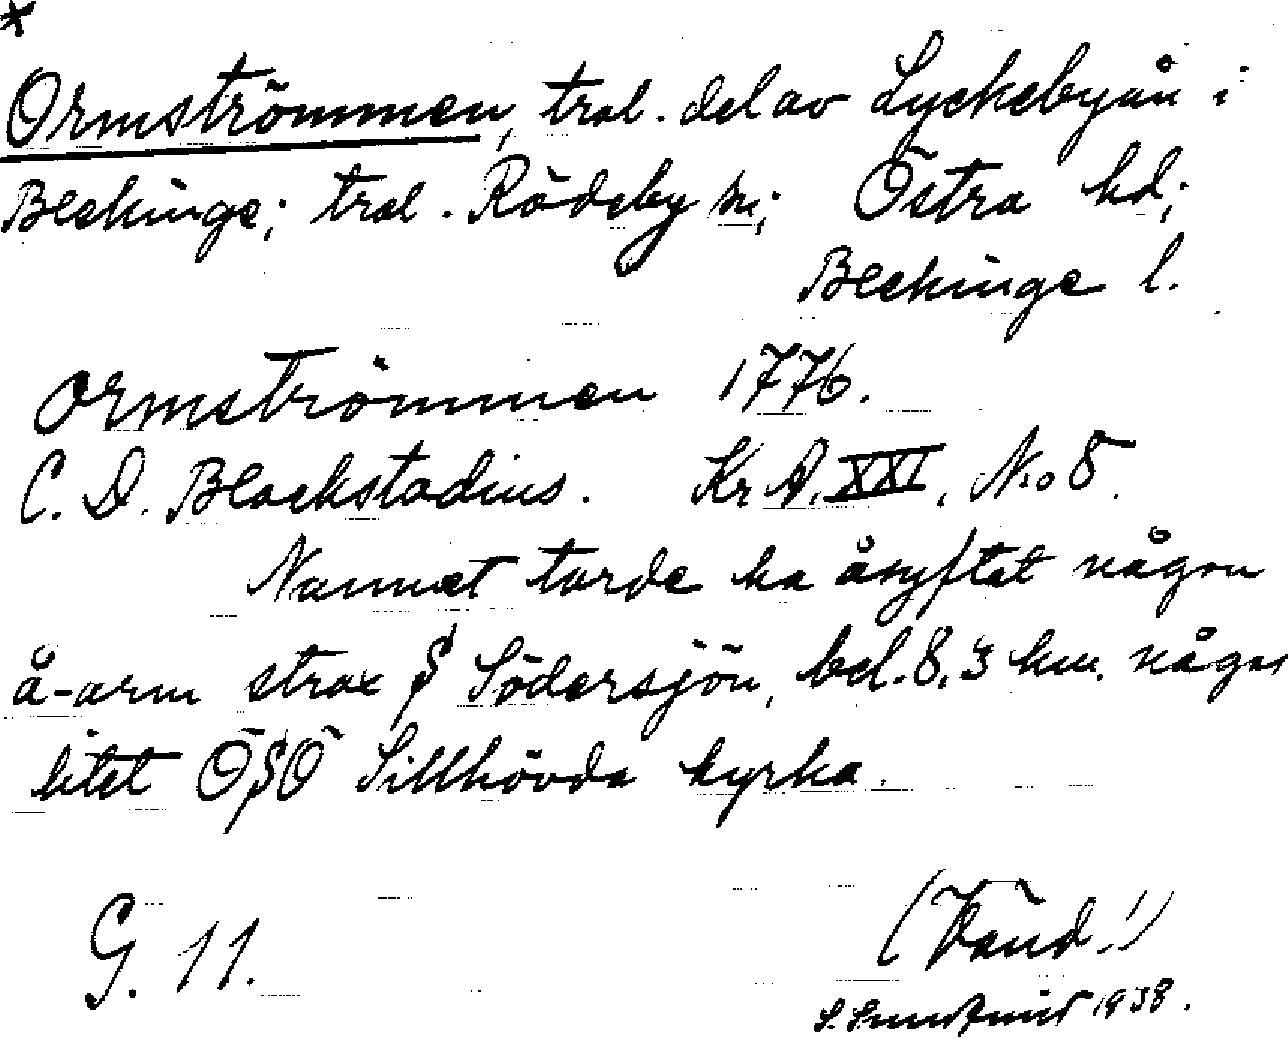 *
Ormströmmen, trol. del av Lyckebyån i
Blekinge; trol. Rödeby sn; Östra hd;
Blekinge l.
Ormströmmen 1776.
C. D. Blackstadius. Kr A. XXI, No 8.
Namnet torde ha åsyftat någon
å-arm strax S Södersjön, bel. 8,3 km. något
litet ÖSÖ Sillhövda kyrka.
G. 11.
(Vänd!)
1938.